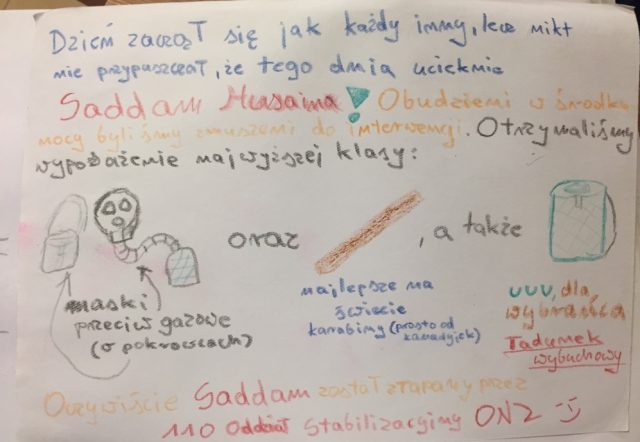 Dzień zaczął się jak każdy inny, lecz nikt
nie przypuszczał, że tego dnia ucieknie
Saddam Husaina! Obudzieni w środku
nocy byliśmy zmuszeni do interwencji. Otrzymaliśmy
wyposażenie najwyższej klasy:
oraz
, a także
maski
przeciw gazowe
(w pokrowcach)
najlepsze na
świecie
karabiny (prosto od
kanadyjek)
UUU, dla
wybrańca
Ładunek
wybuchowy
Oczywiście Saddam został złapany przez
110 Oddział Stabilizacyjny ONZ :)